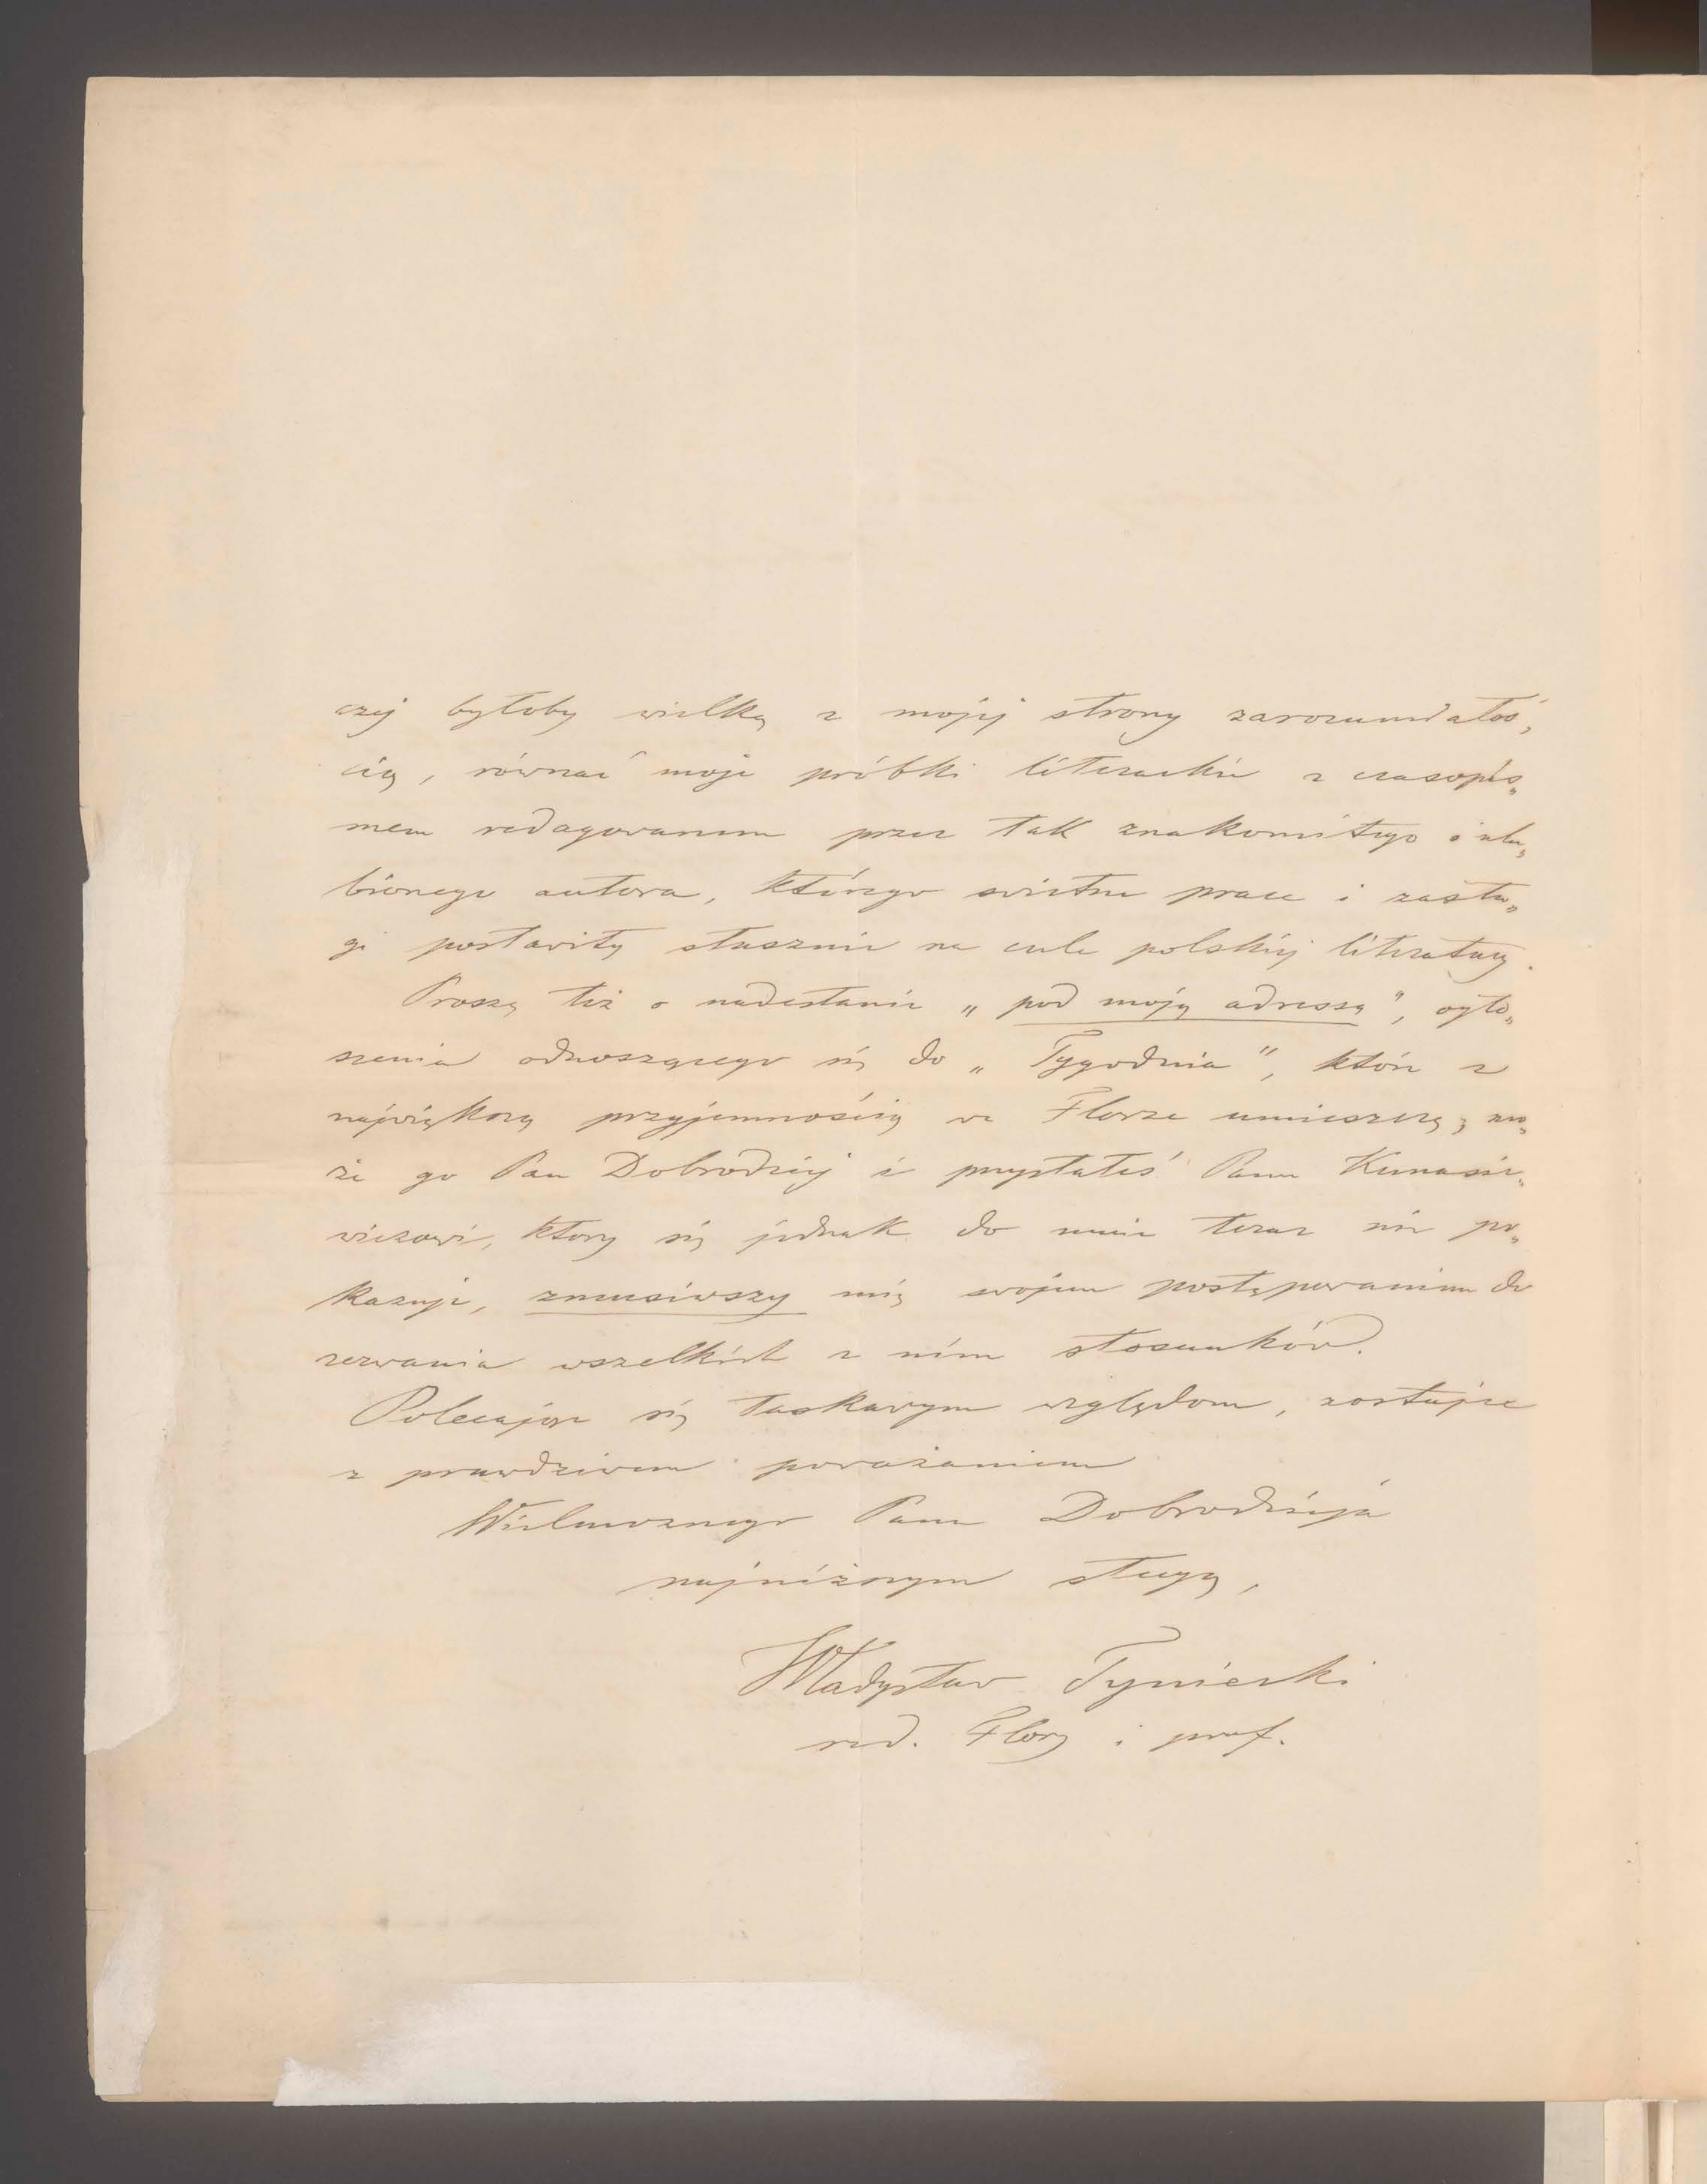 czej byłoby wielką z mojéj strony zarozumiałoś„
cią, równać moje próbki literackie z czasopis„
mem redagowanem przez tak znakomitego i ulu„
bionego autora, którego świetne prace i zasłu„
gi postawiły słusznie na czele polskiéj literatury.
Proszę też o nadesłanie „pod moją adressą", ogło„
szenia odnoszącego się do „Tygodnia", które z
największą przyjemnością we Florze umieszczę; mo„
że go Pan Dobrodziéj i przysłałeś Panu Kunasie„
wiczowi, który się jednak do mnie teraz nie po„
kazuje, zmusiwszy mię swojem postępowaniem do
zerwania wszelkich z nim stosunków.
Polecając się łaskawym względom, zostaję
z prawdziwem poważaniem
Wielmożnego Pana Dobrodzieja
najniższym sługą,
Władysław Tyniecki
red. Flory i prof.